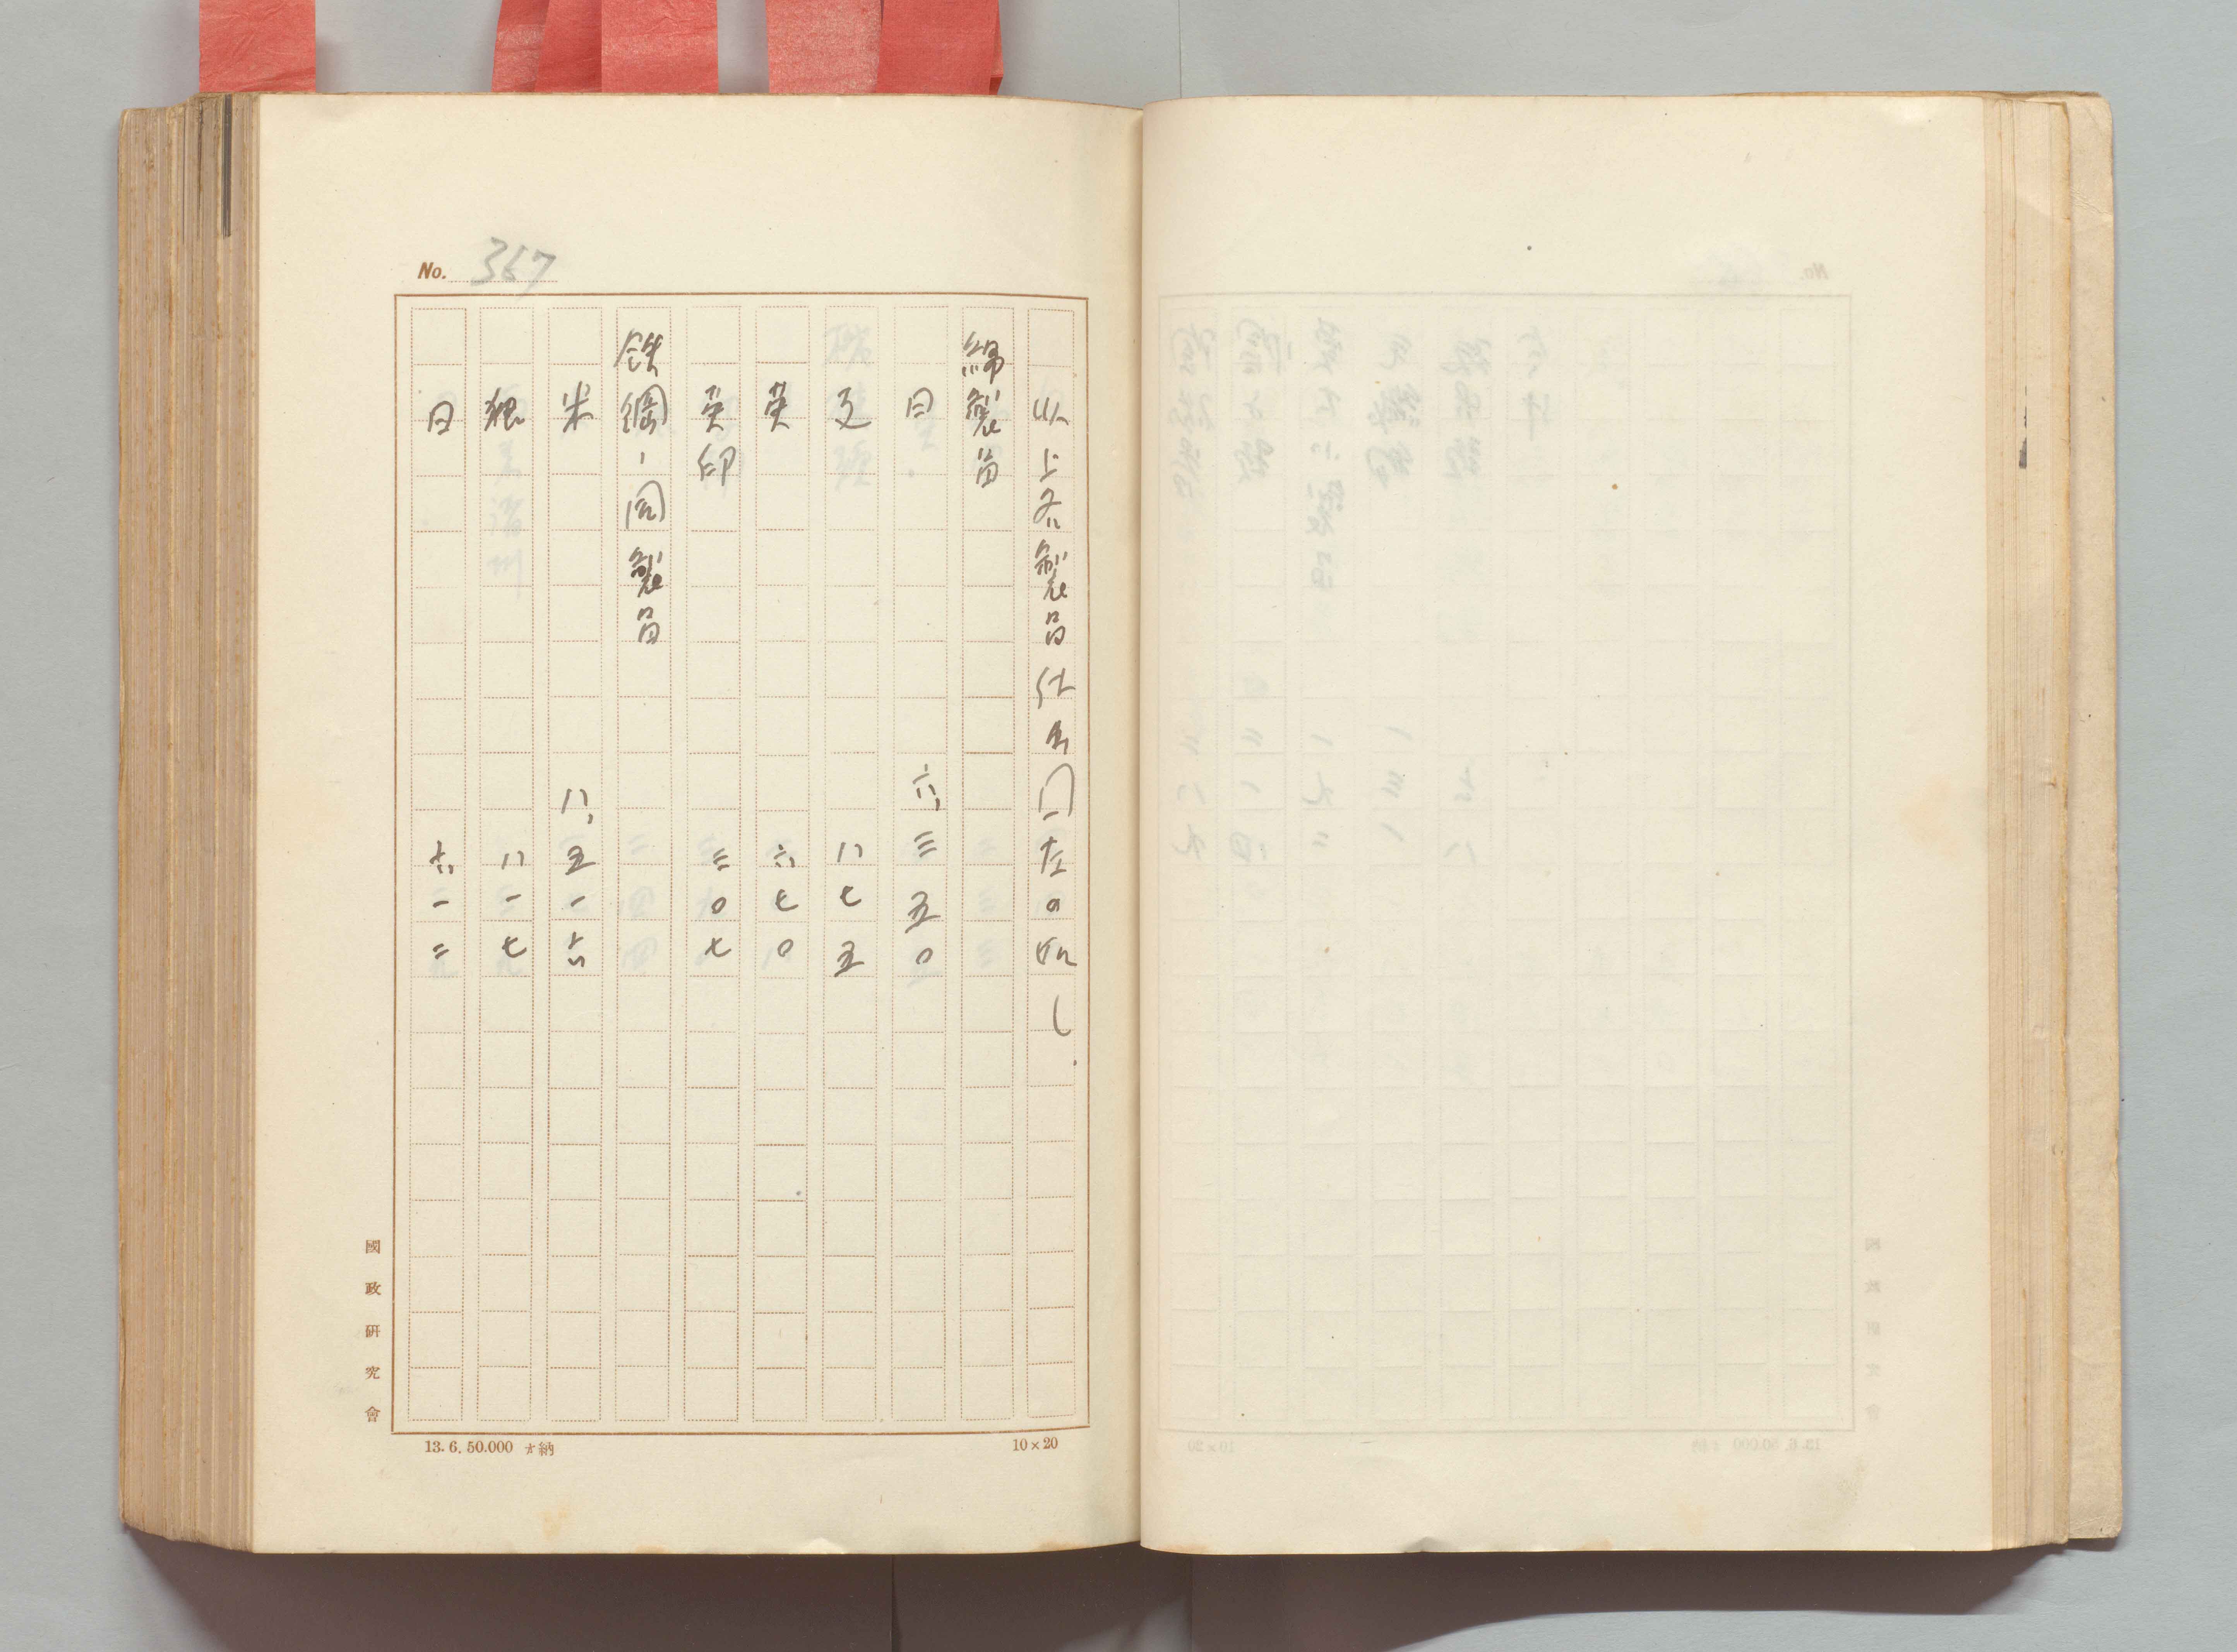 No. 367
以上各製品仕出国左の如し
綿製品
日 六、三五〇
支 八七五
英 六七〇
英印 三〇七
鉄鋼、同製品
米 八、五一六
独 八一七
日 六一二
國政研究會
13.6.50.000 納
10×20